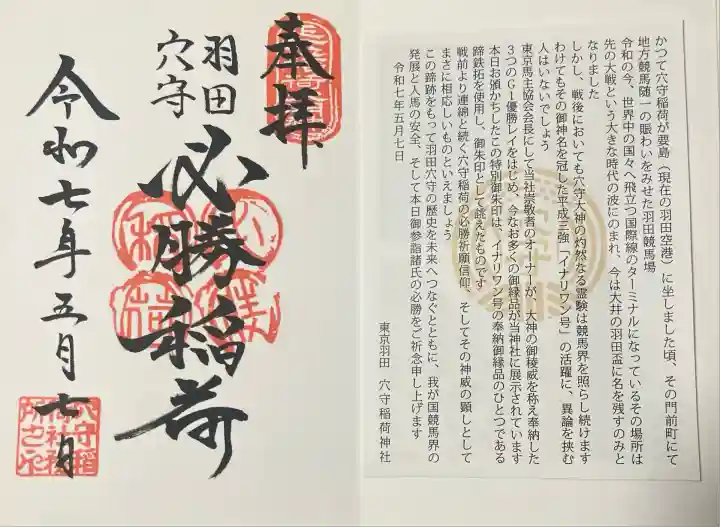 奉拝
羽田
穴守
必勝稲荷
令和七年五月七日
かつて穴守稲荷が要島（現在の羽田空港）に坐しました頃、その門前町にて
地方競馬随一の賑わいをみせた羽田競馬場
令和の今、世界中の国々へ飛立つ国際線のターミナルになっているその場所は
先の大戦という大きな時代の波にのまれ、今は大井の羽田盃に名を残すのみと
なりました
しかし、戦後においても穴守大神の灼然なる霊験は競馬界を照らし続けます
わけてもその御神名を冠した平成三強「イナリワン号」の活躍に、異論を挟む
人はいないでしょう
東京馬主協会会長にして当社崇敬者のオーナーが、大神の御稜威を称え奉納した
3つのG1優勝レイをはじめ、今なお多くの御縁品が当神社に展示されています
本日お頒かちしたこの特別御朱印は、イナリワン号の奉納御縁品のひとつである
蹄鉄拓を使用し、御朱印として誂えたものです
戦前より連綿と続く穴守稲荷の必勝祈願信仰、そしてその神威の顕しとして
まさに相応しいものといえましょう
この蹄跡をもって羽田穴守の歴史を未来へつなぐとともに、我が国競馬界の
発展と人馬の安全、そして本日御参詣諸氏の必勝をご祈念申し上げます
令和七年五月七日
東京羽田　穴守稲荷神社